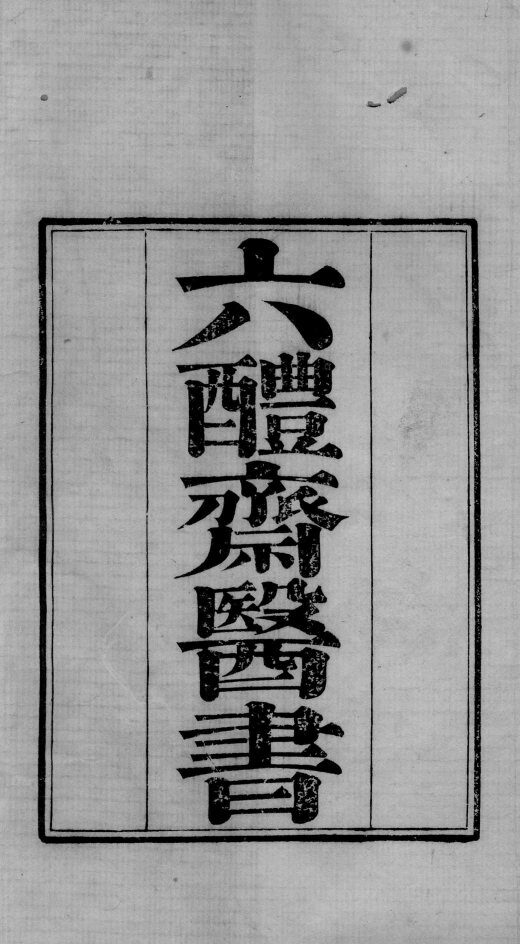 六醴齋醫書